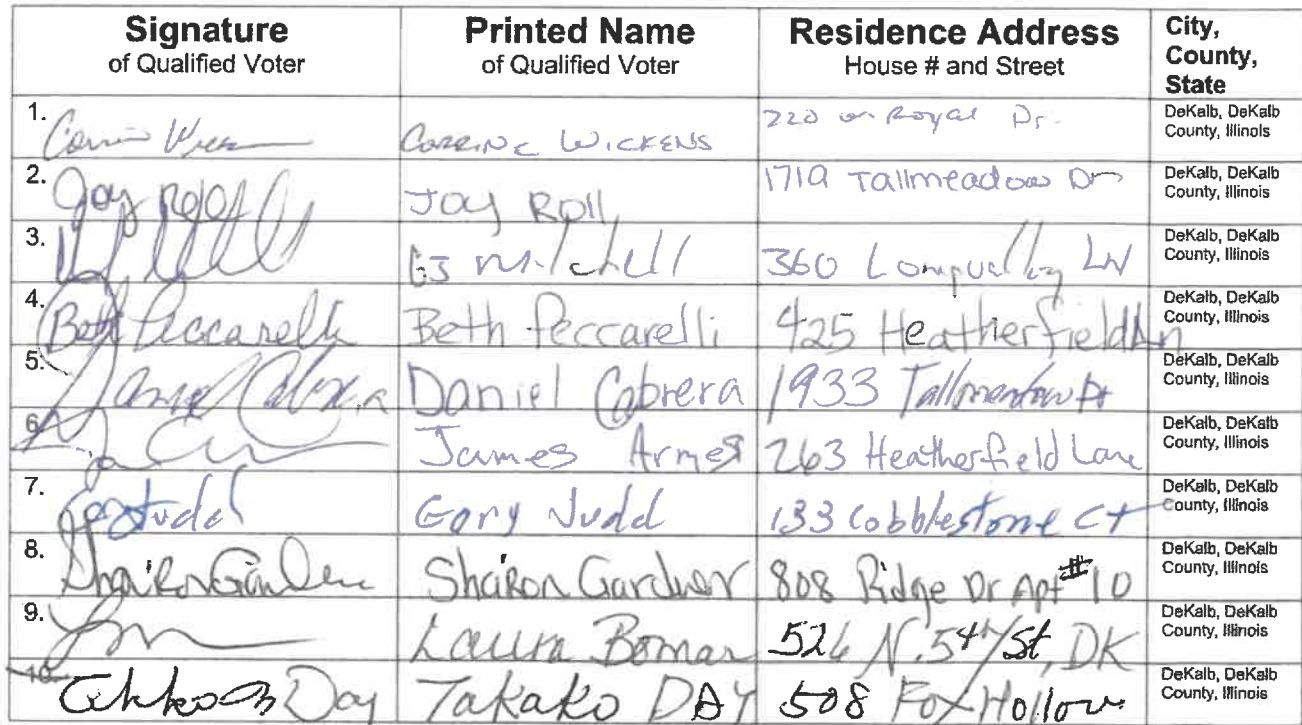 Signature Printed Name Residence Address City,
of Qualified Voter of Qualified Voter House # and Street County,
State
1. CORRINE WICKENS 220 Royal Dr. DeKalb, DeKalb
County, Illinois
2. Joy Roll Joy Roll 1719 Tallmeadow Dr DeKalb, DeKalb
County, Illinois
3. Mitchell 360 LN DeKalb, DeKalb
County, Illinois
4. Beth Peccarelli Beth Peccarelli 425 Heatherfield Ln DeKalb, DeKalb
County, Illinois
5. Daniel Cabrera Daniel Cabrera 1933 Tallmeadow Dr DeKalb, DeKalb
County, Illinois
6. James Armes 263 Heatherfield Lane DeKalb, DeKalb
County, Illinois
7. Judd Gary Judd 133 Cobblestone Ct DeKalb, DeKalb
County, Illinois
8. Sharon Gardner Sharon Gardner 808 Ridge Dr Apt #10 DeKalb, DeKalb
County, Illinois
9. Laura Bomar 526 N. 5th St, DK DeKalb, DeKalb
County, Illinois
10. Day Takako DAY 508 Fox Hollow DeKalb, DeKalb
County, Illinois